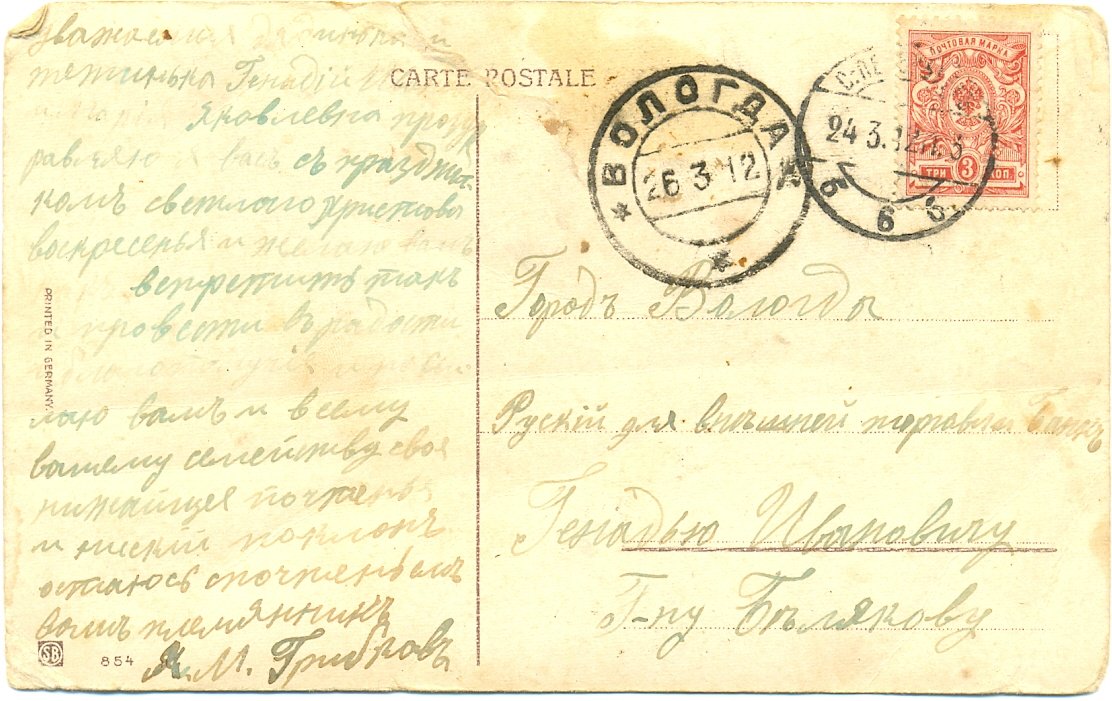 уважаемая дядинька и
тетинька Генадiй
Яковлевна проздр
равляю я васъ съ празднi
комъ светлого христова
воскресенья и желаю вамъ
встретить такъ
и провести в радости
и благополучия и посi
лаю вамъ и всему
вашему семейству своя
нижайщея почтенья
и ниский поклонъ
остаюсь спочтеньемъ
вашъ племянникъ
М. Грибковъ
PRINTED IN GERMANY
SB
854
CARTE POSTALE
ВОЛОГДА
26 3 12
24 3.12
ПОЧТОВАЯ МАРКА
ТРИ 3 КОП
Городъ Вологды
Рускiй для внѣшней торговли банкъ
Генадью Ивановичу
Г-ну Бѣлякову